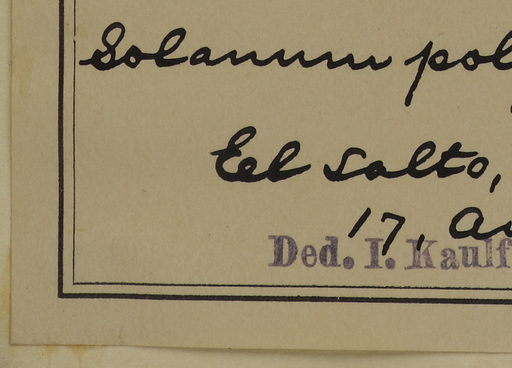 Solanum pol
Eel Salto,
17, Au
Ded. I. Kaulf